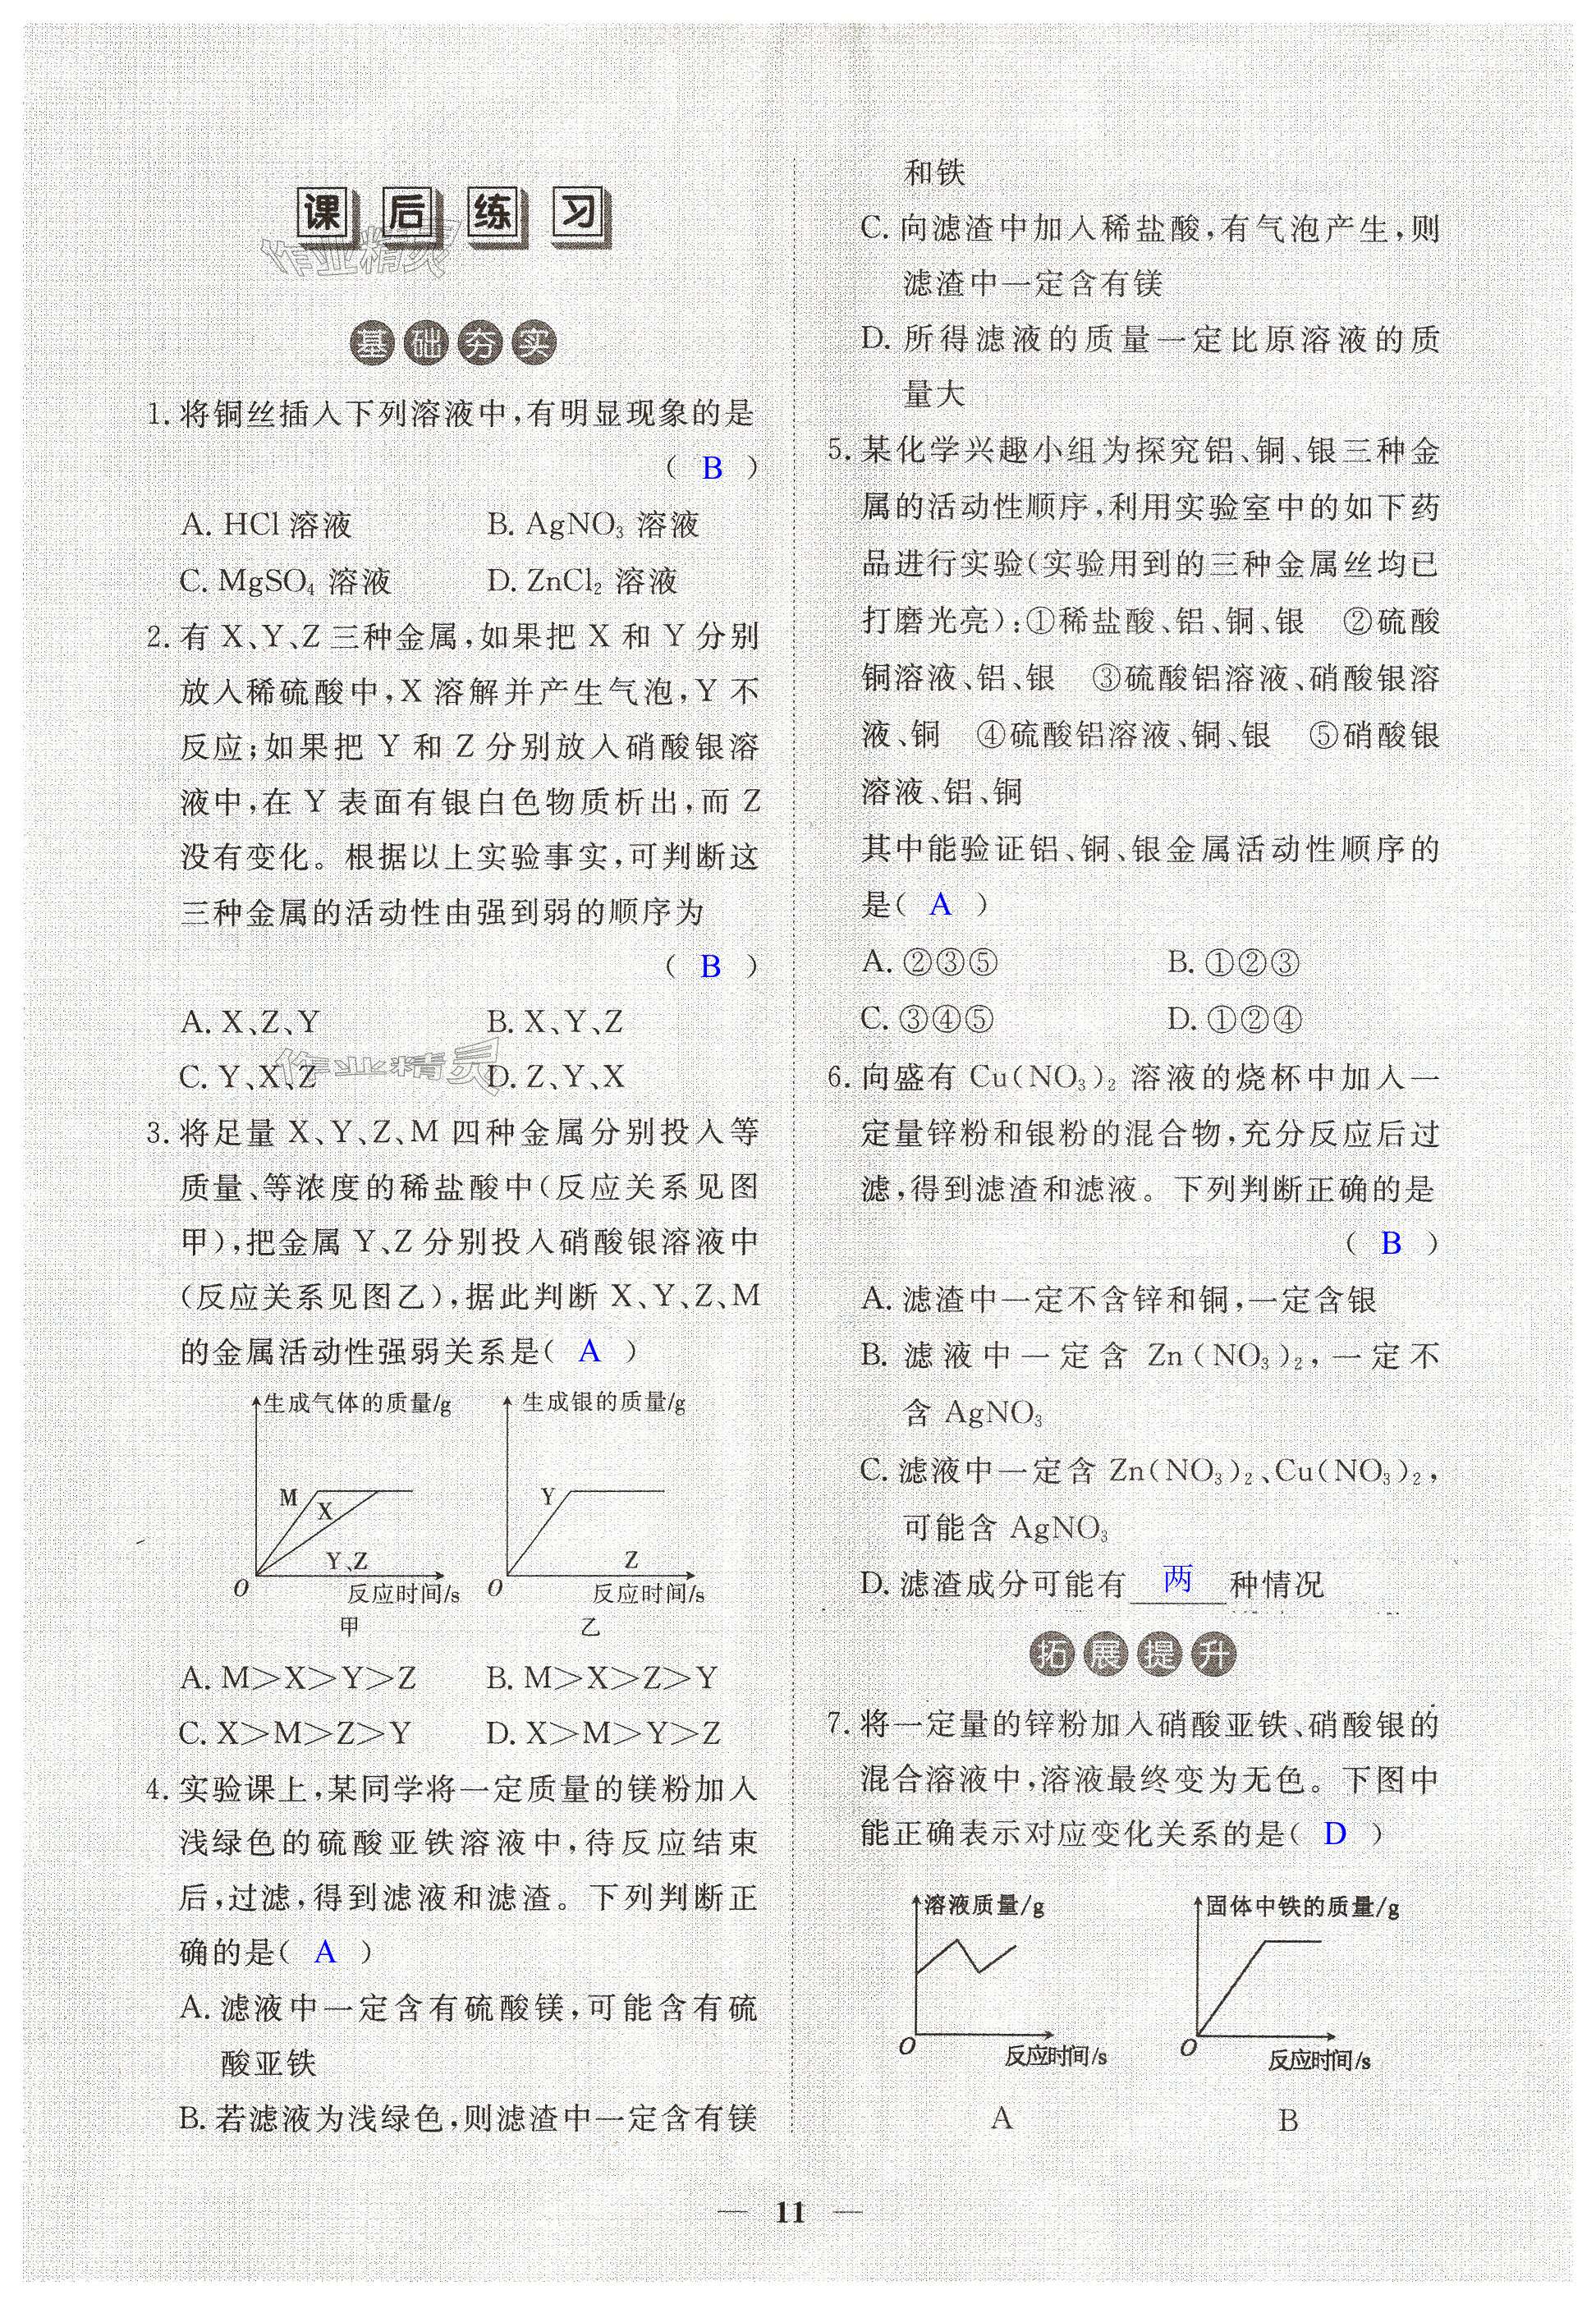 课后练习
作业精灵
基础夯实
1. 将铜丝插入下列溶液中,有明显现象的是
( B )
A. HCl 溶液 B. AgNO₃ 溶液
C. MgSO₄ 溶液 D. ZnCl₂ 溶液
2. 有 X、Y、Z 三种金属,如果把 X 和 Y 分别
放入稀硫酸中,X 溶解并产生气泡,Y 不
反应;如果把 Y 和 Z 分别放入硝酸银溶
液中,在 Y 表面有银白色物质析出,而 Z
没有变化。根据以上实验事实,可判断这
三种金属的活动性由强到弱的顺序为
( B )
A. X、Z、Y B. X、Y、Z
C. Y、X、Z D. Z、Y、X
作业精灵
3. 将足量 X、Y、Z、M 四种金属分别投入等
质量、等浓度的稀盐酸中(反应关系见图
甲),把金属 Y、Z 分别投入硝酸银溶液中
(反应关系见图乙),据此判断 X、Y、Z、M
的金属活动性强弱关系是( A )
生成气体的质量/g 生成银的质量/g
M X Y、Z Y Z
O 反应时间/s O 反应时间/s
甲 乙
A. M>X>Y>Z B. M>X>Z>Y
C. X>M>Z>Y D. X>M>Y>Z
4. 实验课上,某同学将一定质量的镁粉加入
浅绿色的硫酸亚铁溶液中,待反应结束
后,过滤,得到滤液和滤渣。下列判断正
确的是( A )
A. 滤液中一定含有硫酸镁,可能含有硫
酸亚铁
B. 若滤液为浅绿色,则滤渣中一定含有镁
和铁
C. 向滤渣中加入稀盐酸,有气泡产生,则
滤渣中一定含有镁
D. 所得滤液的质量一定比原溶液的质
量大
5. 某化学兴趣小组为探究铝、铜、银三种金
属的活动性顺序,利用实验室中的如下药
品进行实验(实验用到的三种金属丝均已
打磨光亮):①稀盐酸、铝、铜、银 ②硫酸
铜溶液、铝、银 ③硫酸铝溶液、硝酸银溶
液、铜 ④硫酸铝溶液、铜、银 ⑤硝酸银
溶液、铝、铜
其中能验证铝、铜、银金属活动性顺序的
是( A )
A. ②③⑤ B. ①②③
C. ③④⑤ D. ①②④
6. 向盛有 Cu(NO₃)₂ 溶液的烧杯中加入一
定量锌粉和银粉的混合物,充分反应后过
滤,得到滤渣和滤液。下列判断正确的是
( B )
A. 滤渣中一定不含锌和铜,一定含银
B. 滤液中一定含 Zn(NO₃)₂,一定不
含 AgNO₃
C. 滤液中一定含 Zn(NO₃)₂、Cu(NO₃)₂,
可能含 AgNO₃
D. 滤渣成分可能有 两 种情况
拓展提升
7. 将一定量的锌粉加入硝酸亚铁、硝酸银的
混合溶液中,溶液最终变为无色。下图中
能正确表示对应变化关系的是( D )
溶液质量/g 固体中铁的质量/g
O 反应时间/s O 反应时间/s
A B
— 11 —